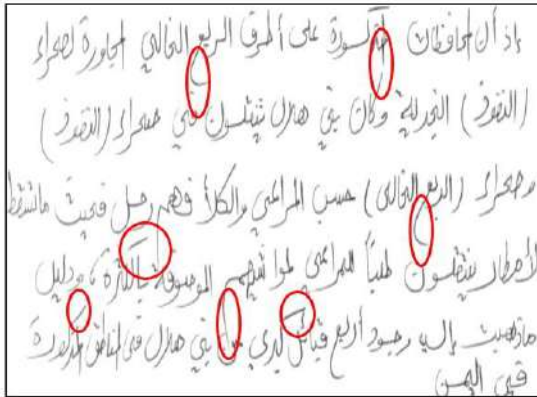 إذ أن المحافظات المذكورة على أطراف الربع الخالي المجاورة لصحراء
(النفوذ) النجدية وكان بني هلال ينتقلون في صحراء (النفوذ)
وصحراء (الربع الخالي) حسب المراعي والكلأ فهم رحل فحيث ما تسقط
الأمطار ينتقلون طلباً للمراعي لمواشيهم الموصوفة بالكثرة ودليل
ماذهبت إليه وجود أربع قبائل لدي من بني هلال في المناطق المذكورة
في اليمن